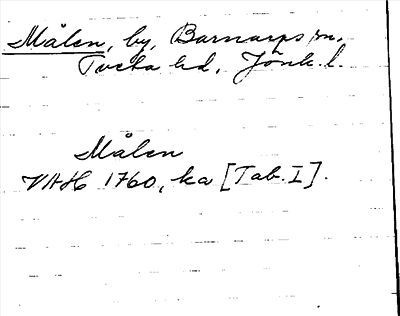 Målen, by, Barnarps sn,
Tveta hd, Jönk. l.
Målen
VAH 1760, ka [Tab. I].